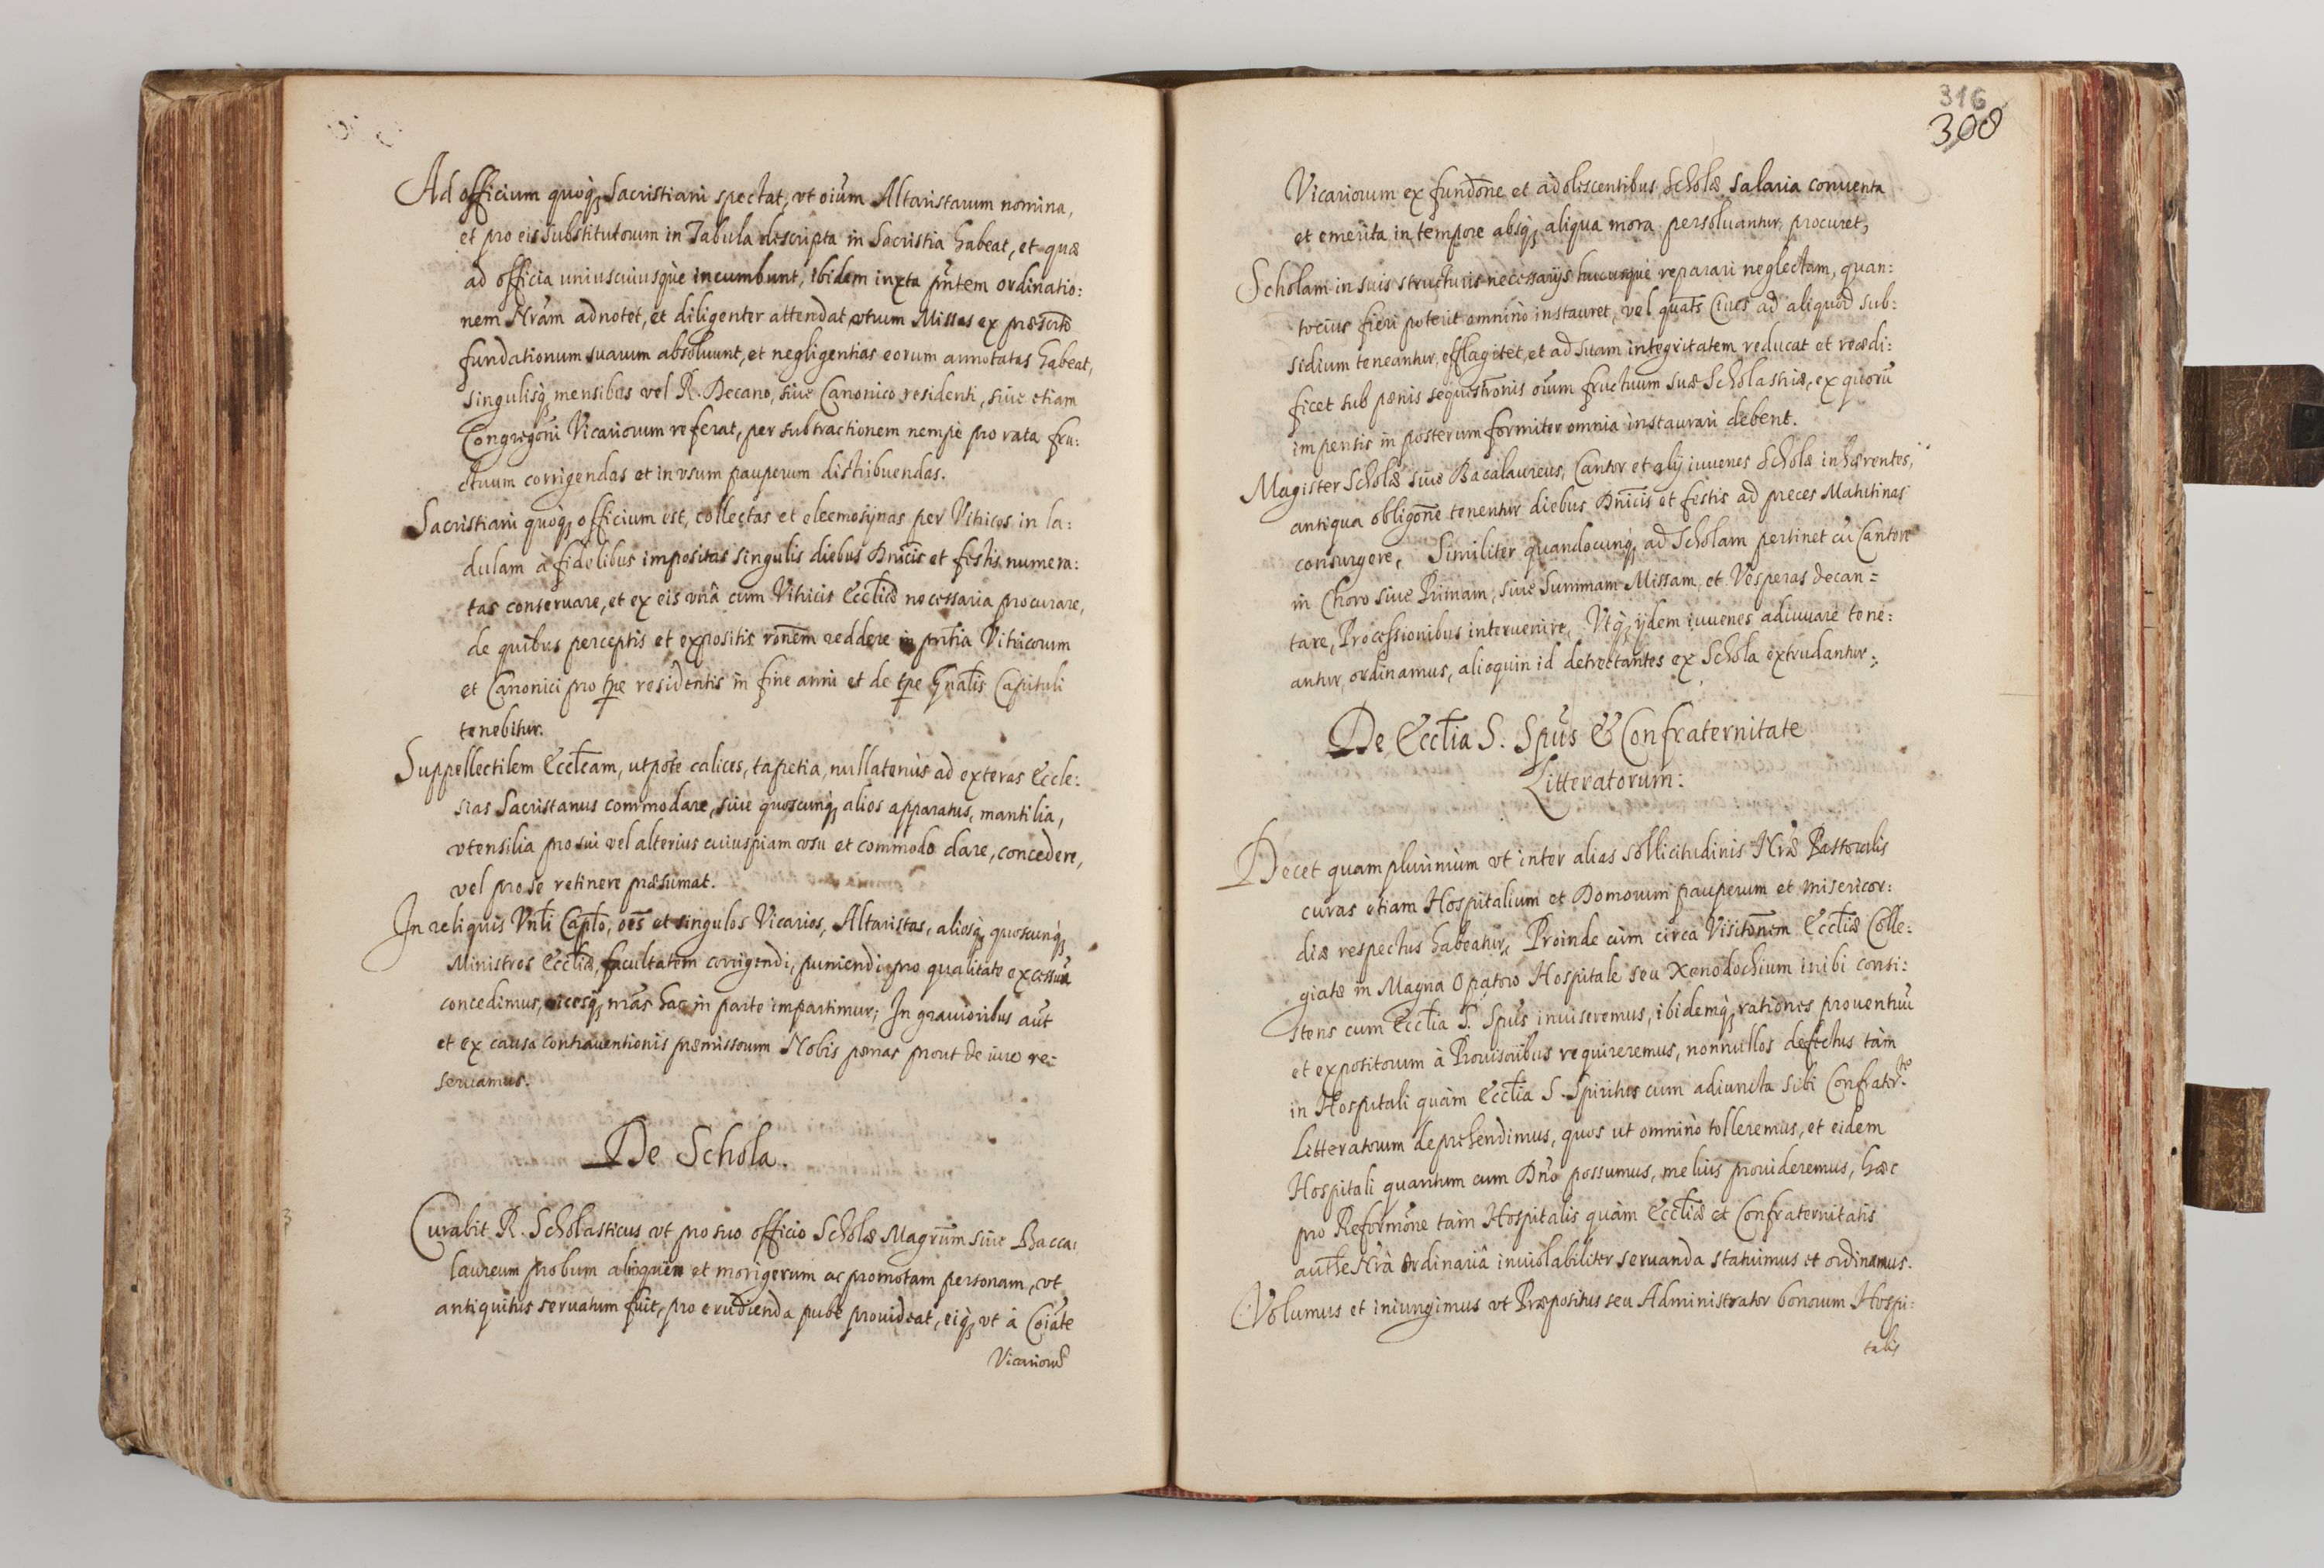 Ad officium quoq; Sacristiani spectat, vt oium̃ Altaristarum nomina,
et pro eis substitutorum in Tabula descripta in Sacristia habeat, et quæ
ad officia uniuscuiusque incumbunt, ibidem iuxta pñtem ordinatio:
nem Nrãm adnotet, et diligenter attendat vtrum Missas ex præscrto
fundationum suarum absoluunt, et negligentias eorum annotatas habeat,
singulisq; mensibus vel R. Decano, siue Canonico residenti, siue etiam
Congregõni Vicariorum referat, per subtractionem nempè pro rata fru:
ctuum corrigendas et in vsum pauperum distribuendas.
Sacristiani quoq; officium est, collectas et eleemosynas per Vitricos in la:
dulam à fidelibus impositas singulis diebus Dnicis et festis numera:
tas conseruare, et ex eis vnâ cum Vitricis Ecclīæ necessaria procurare,
de quibus perceptis et expositis rõnem reddere in pñtia Vitricorum
et Canonici pro tpe residentis in fine anni et de tpe Gñalis Capituli
tenebitur.
Suppellectilem Ecclīcam, utpote calices, tapetia, nullatenùs ad exteras Eccle:
sias Sacristanus commodare, siue quoscunq; alios apparatus, mantilia,
vtensilia pro sui vel alterius cuiuspiam vsu et commodo dare, concedere,
vel pro se retinere præsumat.
In reliquis Vnli Caplo, oẽs et singulos Vicarios, Altaristas, aliosq; quoscunq;
Ministros Ecclīæ, facultatem corrigendi, puniendi pro qualitate excessuũ
concedimus, vicesq; nrãs hac in parte impartimur; In grauioribus aũt
et ex causa contrauentionis præmissorum Nobis pænas prout de iure re:
seruamus.
De Schola.
Curabit R. Scholasticus vt pro suo officio Scholæ Magrũm siue Bacca:
laureum probum alioquin et morigerum ac promotam personam, vt
antiquitus seruatum fuit, pro erudienda pube prouideat, eiq; vt à Coĩate
Vicariorũ
316
308
Vicariorum ex fundõne et adoliscentibus Scholæ salaria conuenta
et emerita in tempore absq; aliqua mora persoluantur, procuret,
Scholam in suis structuris necessarijs hucusque reparari neglectam, quan:
tocius fieri poterit omninò instauret, vel quats Ciues ad aliquod sub:
sidium teneantur, efflagitet, et ad suam integritatem reducat et reædi:
ficet sub pænis sequistrõnis oium fructuum suæ Scholastriæ, ex quorũ
impensis in posterum formiter omnia instaurari debent.
Magister Scholæ siue Bacalaureus, Cantor et alij iuuenes Scholæ inhærentes,
antiqua obligõne tenentur diebus Dnicis et festis ad preces Matutinas
consurgere, Similiter quandocunq; ad Scholam pertinet cũ Cantore
in Choro siue Primam, siue Summam Missam, et Vesperas decan=
tare, Processionibus interuenire, Vtq; ijdem iuuenes adiuuare tene:
antur, ordinamus, alioquin id detrectantes ex Schola extrudantur.
De Ecclīa S. Spũs & Confraternitate
Litteratorum:
Decet quam plurimum vt inter alias sollicitudinis Nrẽ Pastoralis
curas etiam Hospitalium et Domorum pauperum et misericor:
diæ respectus habeatur, Proinde cùm circa Visitõnem Ecclīæ Colle:
giatæ in Magna Opatow Hospitale seu Xenodochium inibi consi:
stens cum Ecclīa S. Spũs inuiseremus, ibidemq; rationes prouentuũ
et expositorum à Prouisoribus requireremus, nonnullos defectus tàm
in Hospitali quàm Ecclīa S. Spiritus cum adiuncta sibi Confrater.te
Litteratorum deprehendimus, quos ut omninò tolleremus, et eidem
Hospitali quantum cum Dño possumus, melius prouideremus, hæc
pro Reformõne tàm Hospitalis quàm Ecclīæ et Confraternitatis
authe Nrâ Ordinariâ inuiolabiliter seruanda statuimus et ordinamus.
Volumus et iniungimus vt Præpositus seu Administrator bonorum Hospi:
talis